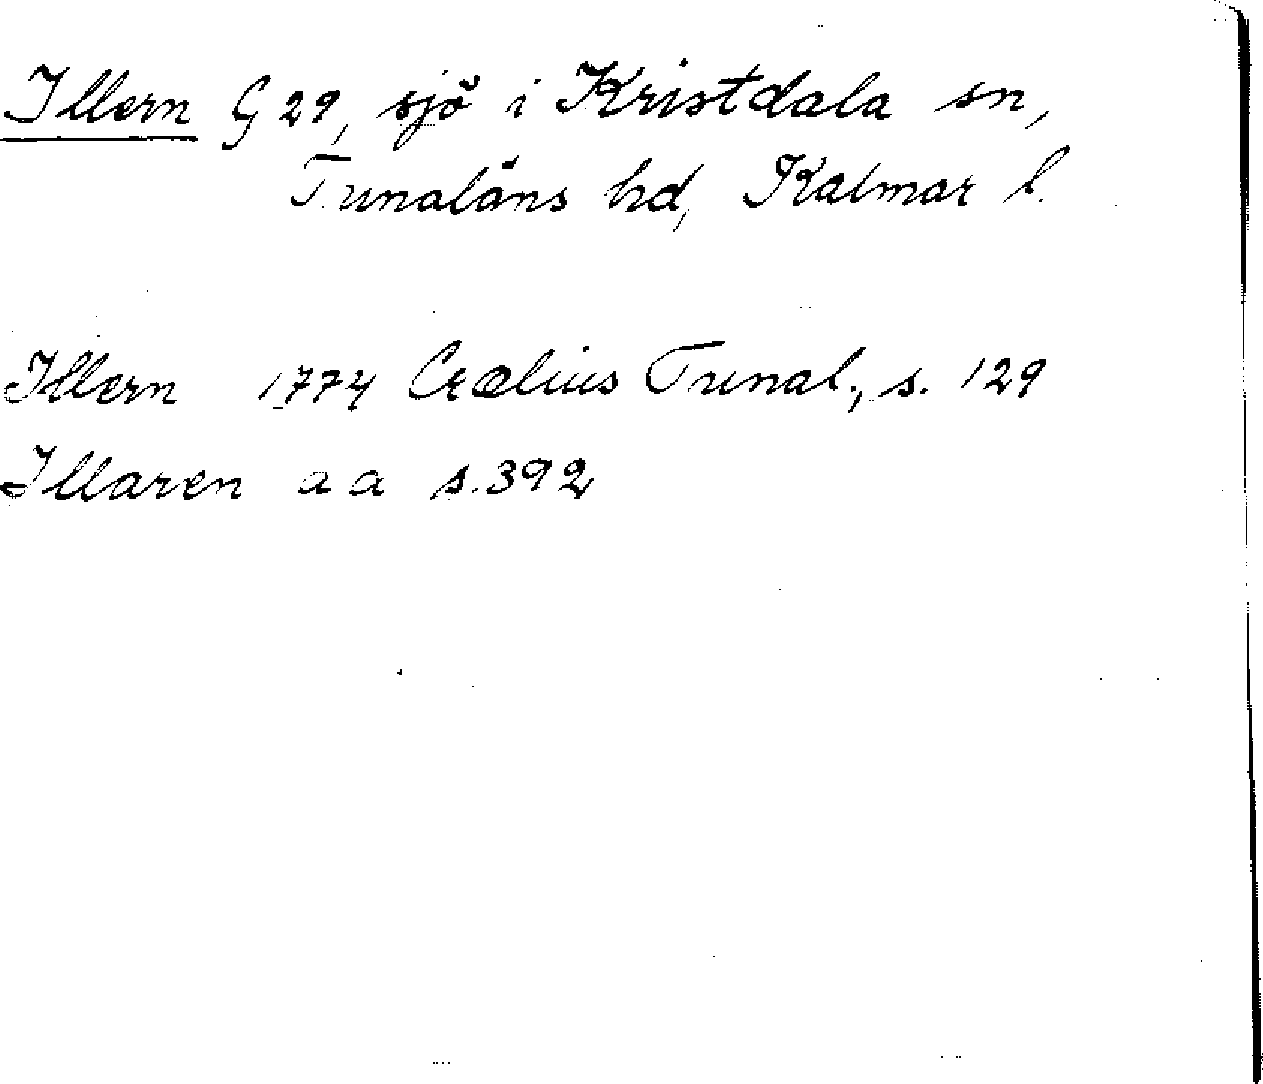 Illern G 29, sjö i Kristdala sn,
Tunaläns hd, Kalmar l.
Illern 1774 Crælius Tunal., s. 129
Illaren a a s. 392